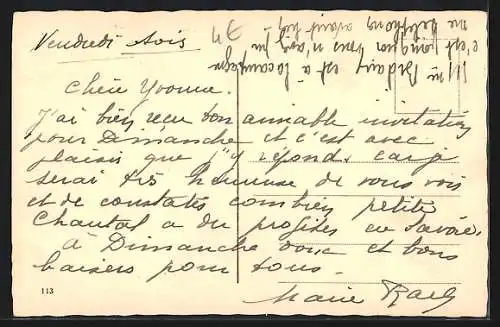 Vendredi Soir
Chère Yvonne.
J'ai bien reçu ton aimable invitation
pour Dimanche et c'est avec
plaisir que j'y réponds. car je
serai très heureuse de vous voir
et de constater combien petite
Chantal a du profiter en Savoie.
à Dimanche donc et bons
baisers pour tous.
Marie
113
Mme est à la campagne
c'est pourquoi vous n'avez pu
me téléphoner avant hier